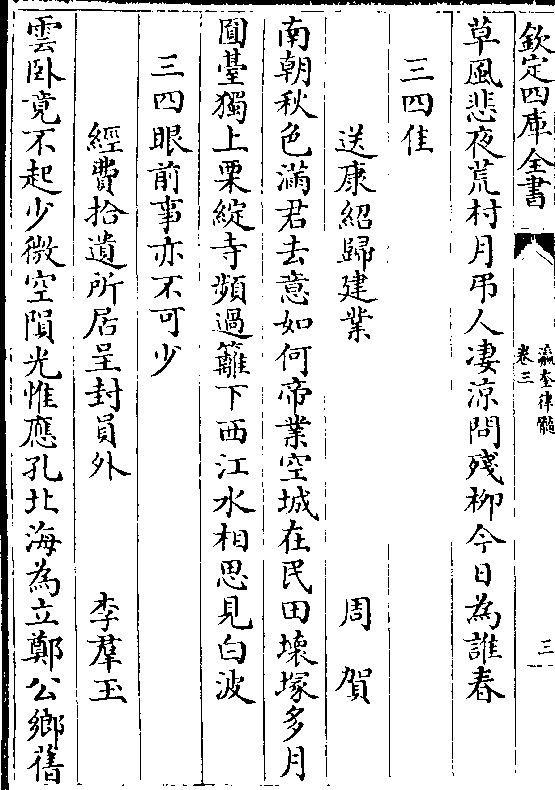 欽定四庫全書
瀛奎律髓
卷三
三
草風悲夜荒村月弔人凄涼問殘柳今日為誰春
三四佳
送康紹歸建業 周賀
南朝秋色滿君去意如何帝業空城在民田壊塚多月
圓臺獨上栗綻寺頻過籬下西江水相思見白波
三四眼前事亦不可少
經費拾遺所居呈封員外 李羣玉
雲卧竟不起少微空隕光惟應孔北海為立鄭公鄉舊